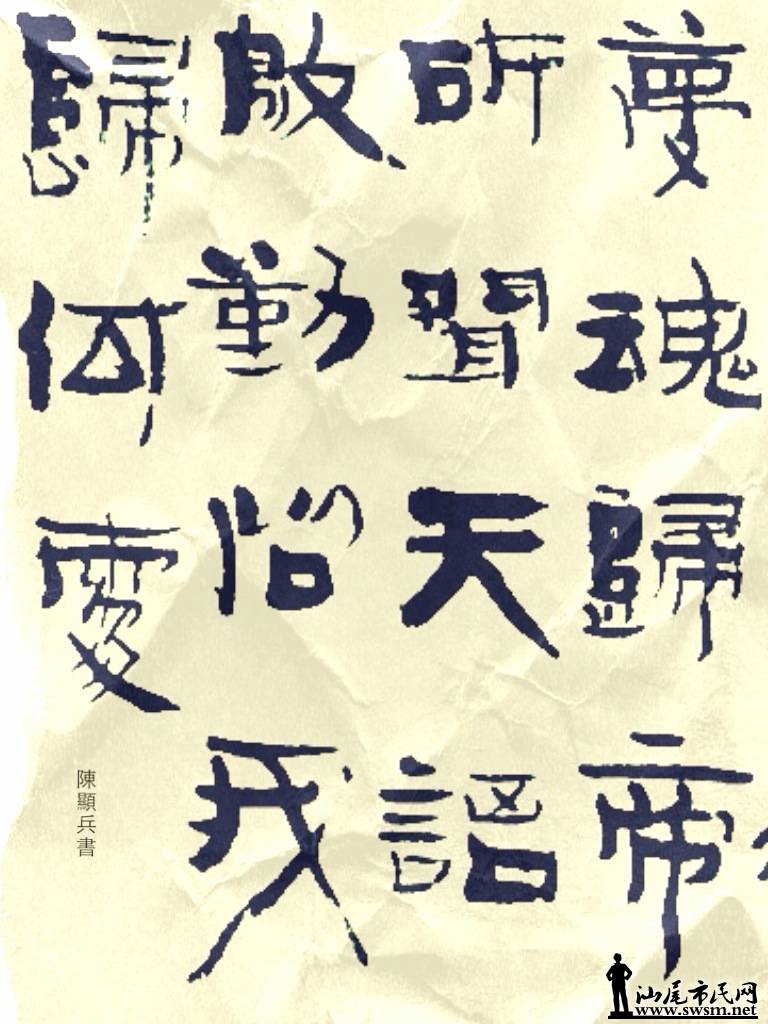 夢魂歸帝
所聞天語
殷勤問我
歸何處
陳顯兵書
汕尾市民网
www.swsm.net